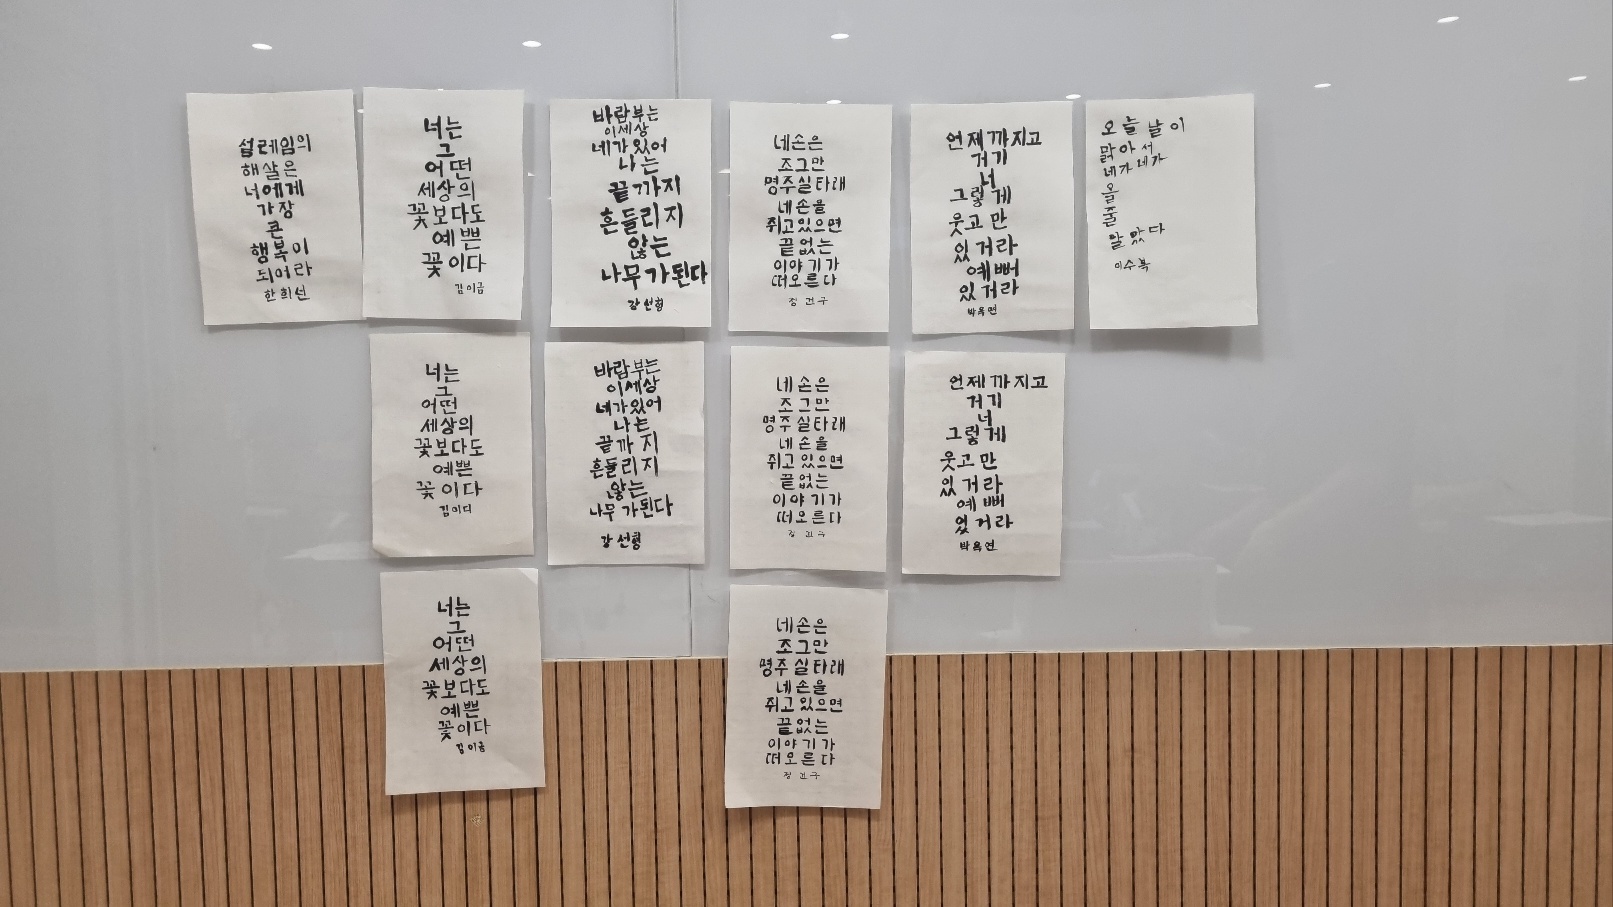 설레임의
해살은
너에게
가장
큰
행복이
되어라
한희선
너는
그
어떤
세상의
꽃보다도
예쁜
꽃이다
김이금
바람부는
이세상
네가있어
나는
끝까지
흔들리지
않는
나무가된다
강선형
네손은
조그만
명주실타래
네손을
쥐고있으면
끝없는
이야기가
떠오른다
정건구
언제까지고
거기
너
그렇게
웃고만
있거라
예뻐
있거라
박옥연
오늘날이
맑아서
네가네가
올
줄
알았다
이수복
너는
그
어떤
세상의
꽃보다도
예쁜
꽃이다
바람부는
이세상
네가있어
나는
끝까지
흔들리지
않는
나무가된다
강선형
네손은
조그만
명주실타래
네손을
쥐고있으면
끝없는
이야기가
떠오른다
정건구
언제까지고
거기
너
그렇게
웃고만
있거라
예뻐
있거라
박옥연
너는
그
어떤
세상의
꽃보다도
예쁜
꽃이다
김이금
네손은
조그만
명주실타래
네손을
쥐고있으면
끝없는
이야기가
떠오른다
정건구